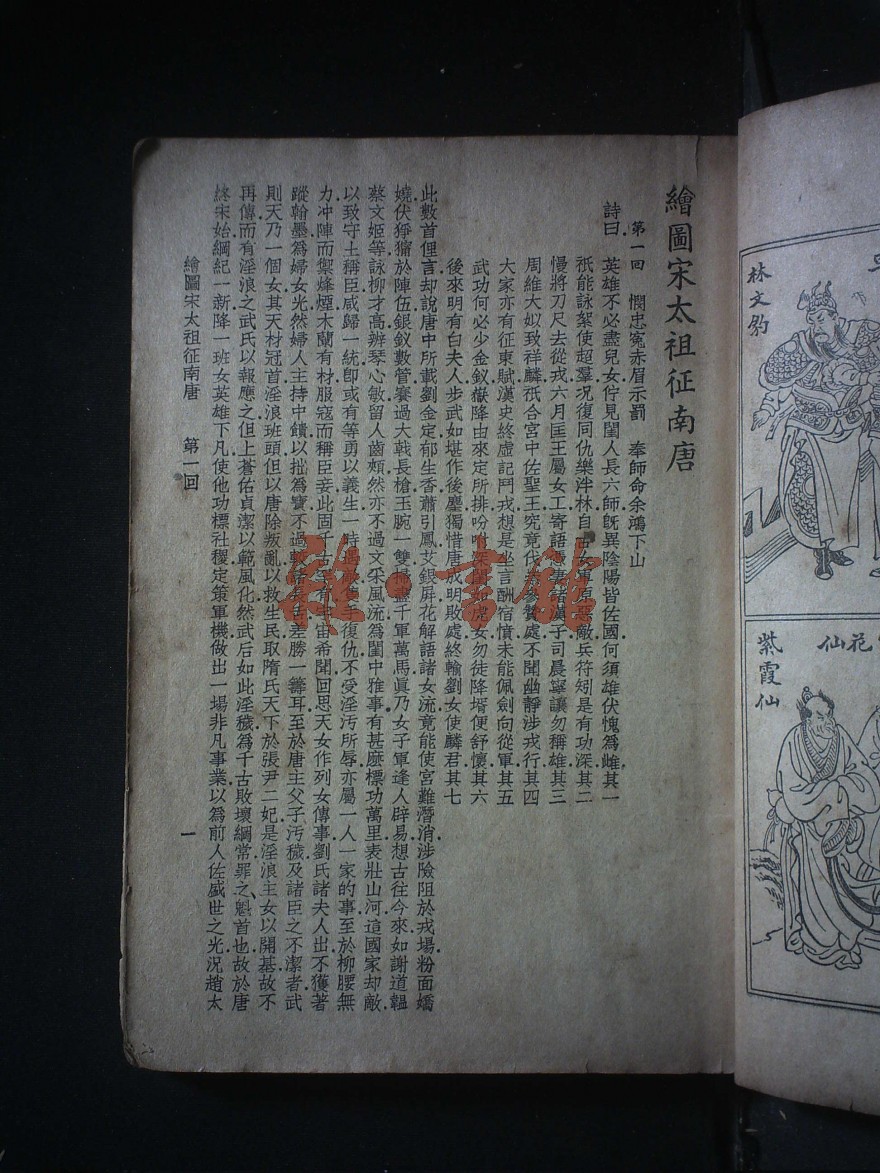 繪圖宋太祖征南唐
第一回 憫忠寃赤眉示罰 奉師命余鴻下山
詩曰 英雄不必盡兒女佇見閨人長六師旣異陰陽皆佐國何須雄伏愧爲雌其一
祇能詠絮使超羣況復同仇樂泮林自古女
惡敵兵符矧是有功深其二
慢將刀尺去從戎六月匡王屬女工寄語
諸漢子司晨寧讓勿稱雄其三
周維大姒致祥麟祇合宮中佐聖王究竟伐
贊處不聞幽靜涉戎行其四
大家亦有征東賦漢史終虛記鬥戎想是坐言酬宿憤未能佩劍向從軍其五
武功何必少金釵嶽降由來定所排吩
深閨如虎女勿徒降壻便舒懷其六
後來明有白夫人步武如堪作後塵獨惜唐成明敗處終輸劉女使麟君其七
此數首俚言却說唐中所載劉金定郁生香蕭引鳳艾銀屏花解語諸女流竟能使宮難潛消涉險阻於戎場粉面嬌
嬈伏猙獰於陣伍銀釵數管賽過大戟長槍玉腕一雙掃盡千軍萬馬眞乃女子軍逢人辟易想古往今來如謝道韞
蔡文姬等詠柳才高辨琴心敏留人齒頰然亦不過文采風流爲閨中雅事有甚麽標功萬里表壯山河這國家却敵
以致守土稱臣咸歸一統卽或有等勇以義生一時
復仇不受淫污所辱亦屬一人一家的事至於柳腰無
力冲陣而禦烽煙木蘭有材服寇而稱臣妾此固千古
宇宙希聞回思天女作列女傳事劉氏諸夫人出不獲著
蹤翰墨爲婦女光然婦人主持中饋以拙爲寶不過
差勝一籌耳至於唐主父子污穢及諸臣之不潔者武
則天乃一個女其天材冠首淫浪班頭但以唐除叛亂以救生民取隋氏天下於張尹二妃是淫浪主女以開基故不
再傳而有淫浪之武氏以報應之但上蒼佑貞潔以範風化然武后如此淫穢爲千古敗壞綱常罪之魁首也故於唐
終宋始綱紀一新降一班女英雄下凡使他功標社稷定策軍機做出一場非凡事業以爲前人佐盛世之光況趙太
繪圖宋太祖征南唐 第一回 一
林文豹
紫霞仙
花仙